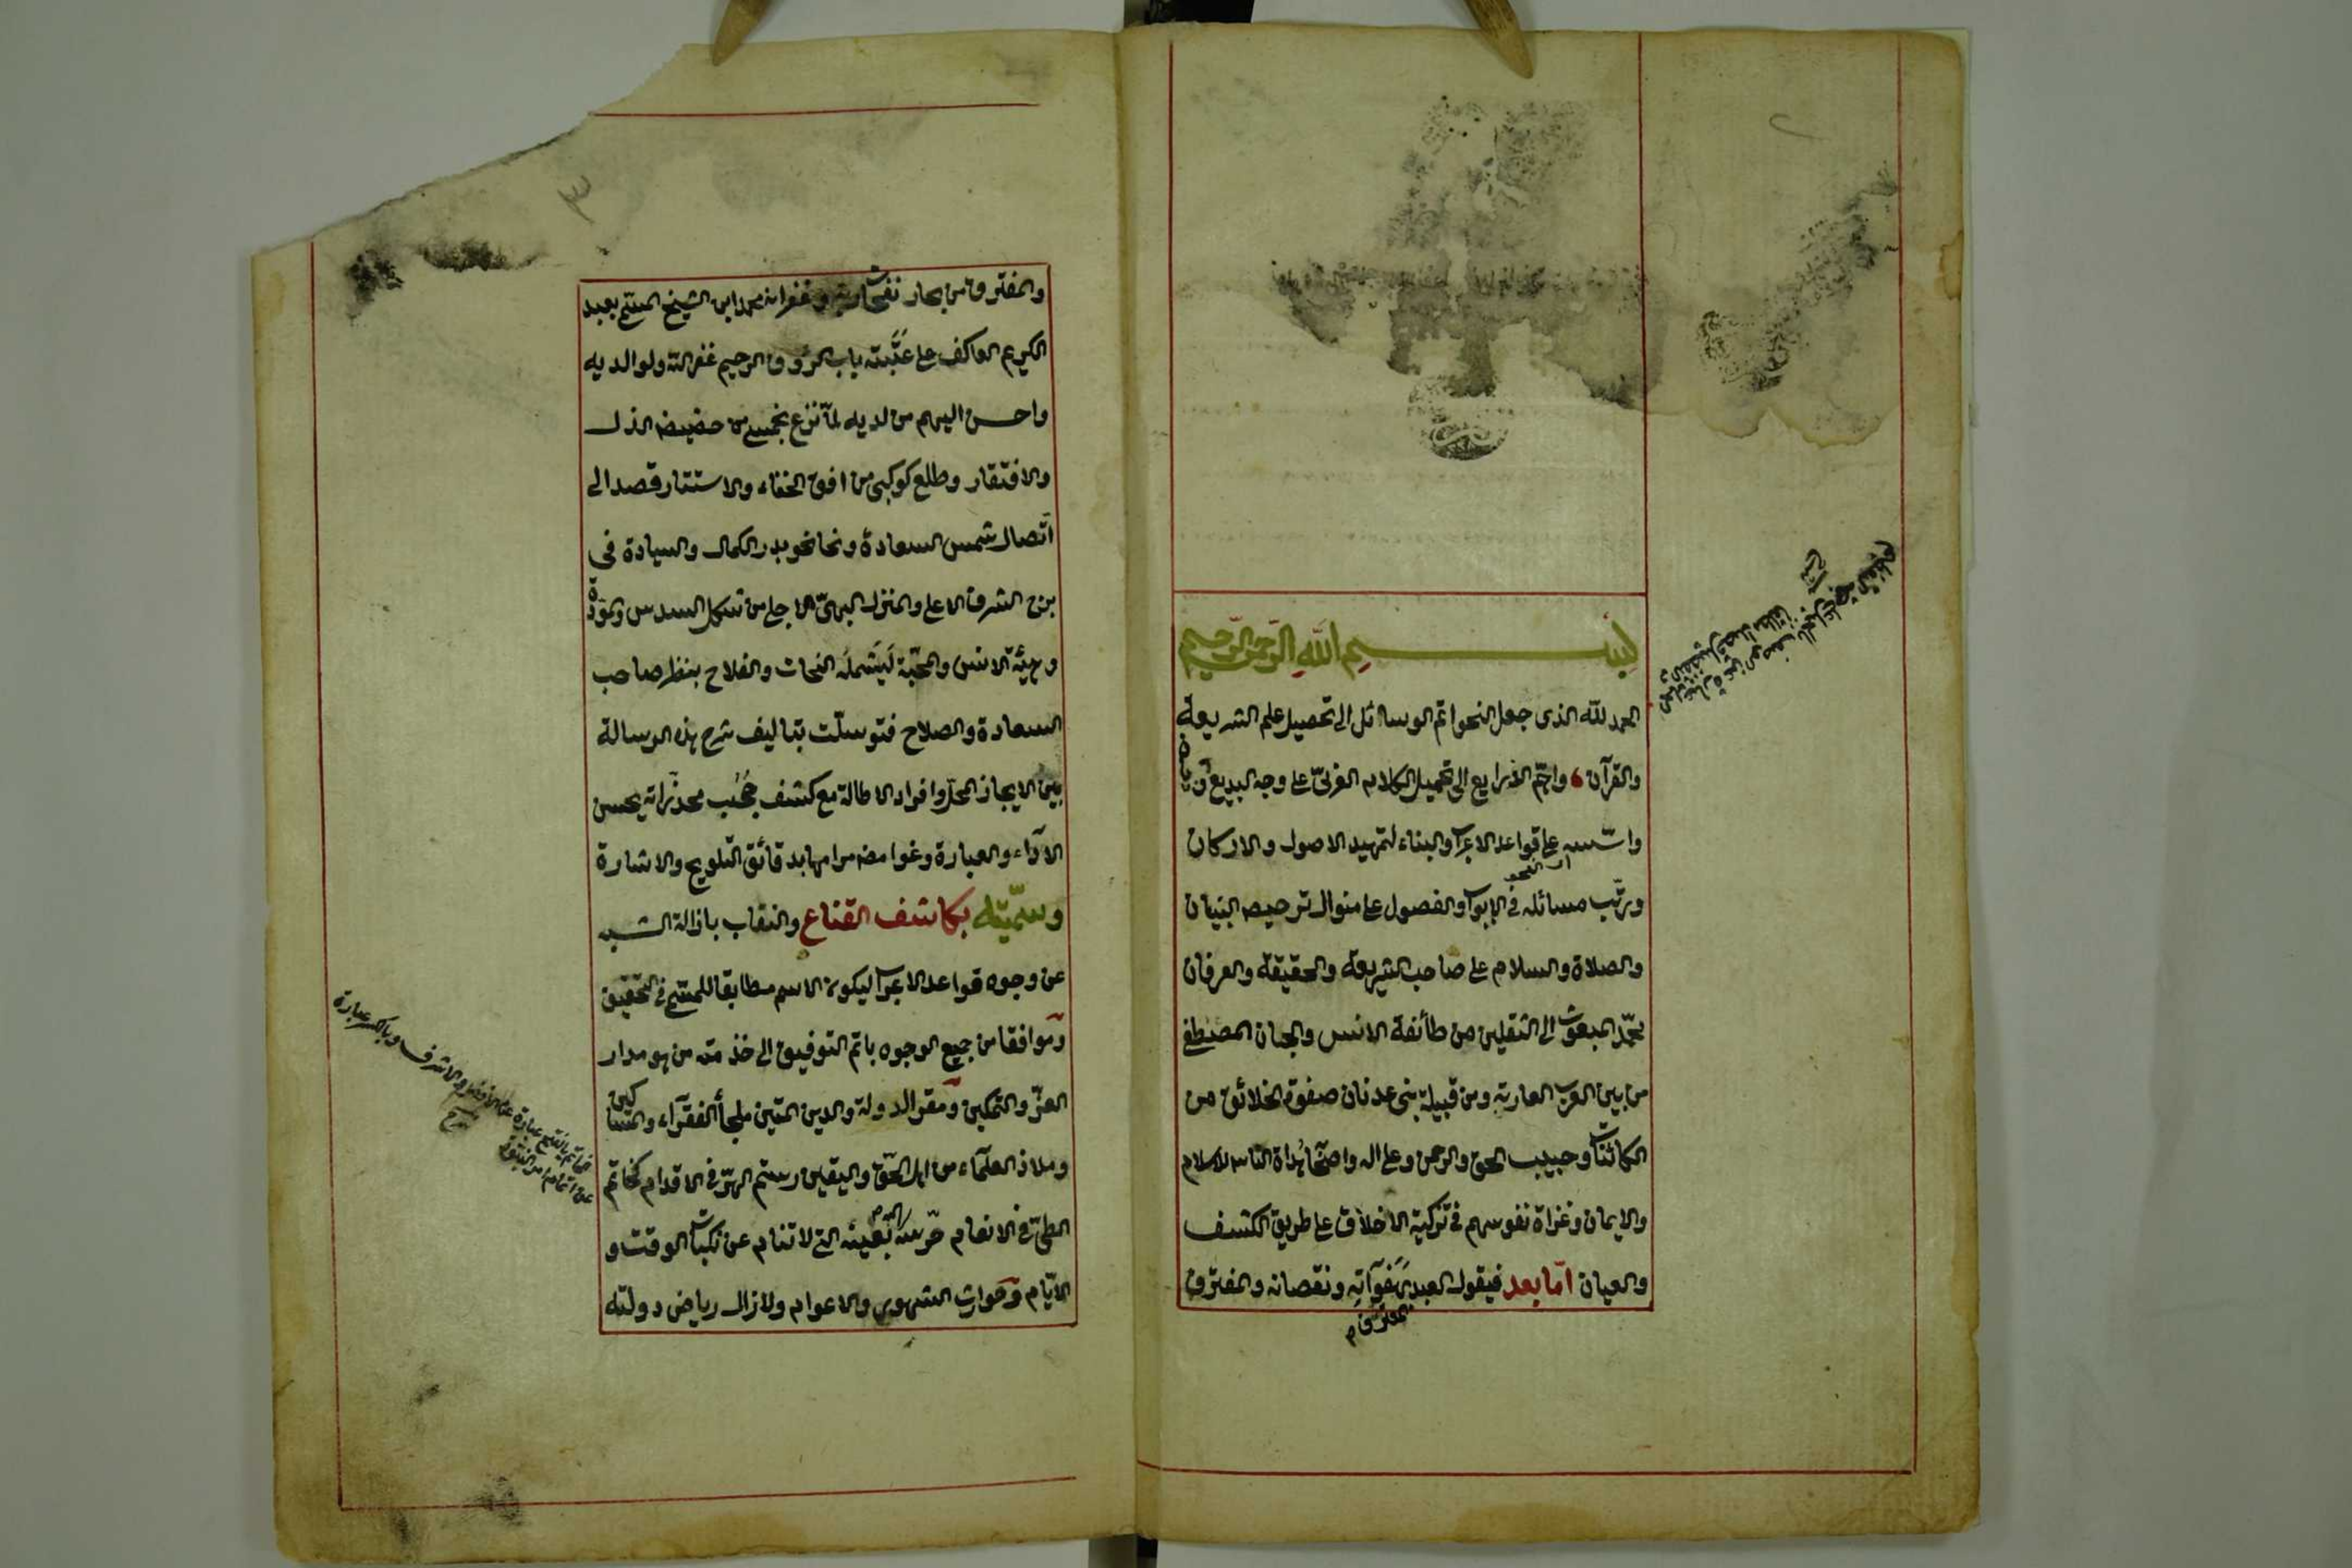 بسم الله الرحمن الرحيم
الحمد لله الذى جعل النحو اتم الوسائل الى تحصيل علم الشريعة
والقرآن واهمّ الذرايع الى تكميل الكلام العربىّ على وجه البديع
واسّسه على قواعد الاعراب والبناء لتمهيد الاصول والاركان
ورتّب مسائله فى الابواب والفصول على منوال ترصيص البنيان
اى النحو
والصلاة والسلام على صاحب الشريعة والحقيقة والعرفان
محمّد المبعوث الى الثقلين من طائفة الانس والجان المصطفى
من بين العرب العاربة ومن قبيلة بنى عدنان صفوة الخلائق من
الكائنات وحبيب الحق والرحمن وعلى اله واصحابه هُداة الناس للاسلام
والايمان وغزاة نفوسهم فى تزكية الاخلاق على طريق الكشف
والعيان امّا بعد فيقول العبد بهَفَوَآتِهِ ونقصانه والمغترف
المعترف
والمغترف من بحار نفحات ربه وغفرانه محمد ابن الشيخ المسمّى بعبد
الكريم العاكف على عَتَبته باب الرؤوف الرحيم غفر الله ولوالديه
واحسن اليهم من لديه لمّا نزع نجمى من حضيض الذل
والافتقار وطلع كوكبى من افق الخفاء والاستتار قصد الى
اتّصال شمس السعادة ونحا نحو بدر الكمال والسيادة فى
برج الشرف الاعلى والمنزل البهىّ الاجلى من شكل السدس والمودّة
وهيئة الانس والمحبّة ليَشمله النجات والفلاح بنظر صاحب
السعادة والصلاح فتوسلّت بتاليف شرح هذه الرسالة
بين الايجاز المخل وافراد الاطالة مع كشف حُجُب مخدّراته بحسن
الآداء والعبارة وغوامض مرامها بدقائق التلويح والاشارة
وسمّيته بكاشف القناع والنقاب بازالة الشبه
عن وجوه قواعد الاعراب ليكون الاسم مطابقا للمسمّى فى التحقيق
وموافقا من جميع الوجوه باتم التوفيق الى خدمته من هو مدار
العزّ والتمكين ومقر الدولة والدين المتين ملجأ الفقرآء والمساكين
وملاذ العلمآء من اهل الحقّ واليقين رستم الهزّ فى الاقدام كخاتم
الطىّ فى الانعام حرّسه الله بعينه التى لا تنام عن نكبات الوقت و
الايّام وحوادث الشهور والاعوام ولازال رياض دولته